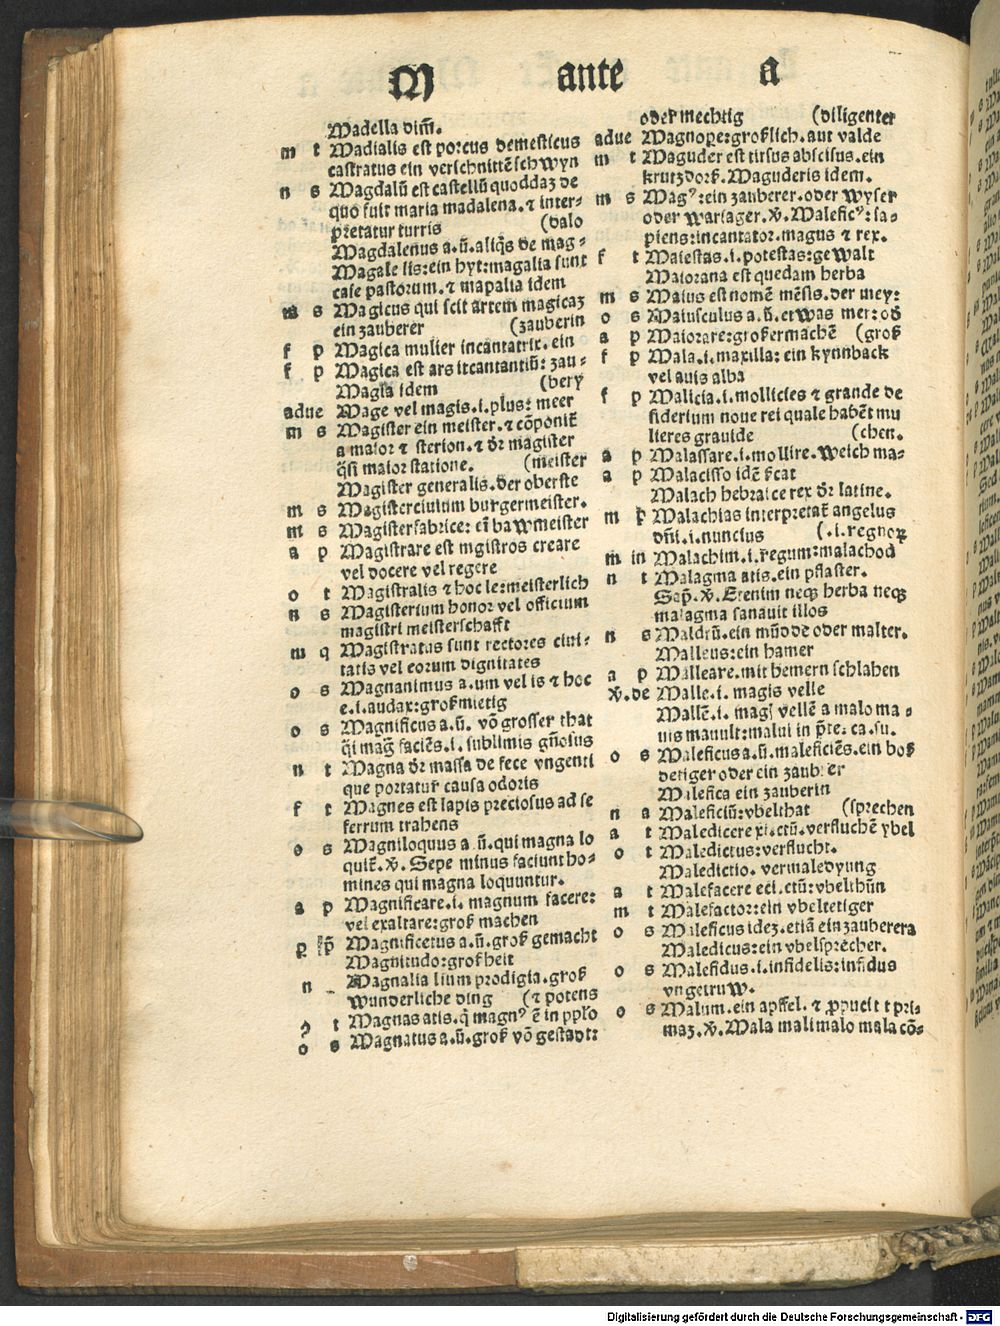 M ante a
Madella dim̄.
m t Madialis est porcus domesticus
castratus ein verschnittē schwyn
n s Magdalū est castellū quoddaz de
quo fuit maria madalena. ⁊ inter-
pretatur turris (dalo
Magdalenus a.ū. aliq̄s de mag-
Magale lis: ein hyt: magalia sunt
case pastorum. ⁊ mapalia idem
m s Magicus qui scit artem magicaz
ein zauberer (zauberin
f p Magica mulier incantatrix. ein
f p Magica est ars itcantantiū: zau-
Magia idem (bery
adue Mage vel magis. i. plus: meer
m s Magister ein meister. ⁊ cōponit᷑
a maior ⁊ sterion. ⁊ dr̄ magister
q̄si maior statione. (meister
Magister generalis. der oberste
m s Magisterciuium burgermeister.
m s Magisterfabrice: eī bawmeister
a p Magistrare est mgistros creare
vel docere vel regere
o t Magistralis ⁊ hoc le: meisterlich
n s Magisterium honor vel officium
magistri meisterschafft
m q Magistratus sunt rectores ciui-
tatis vel eorum dignitates
o s Magnanimus a. um vel is ⁊ hoc
e. i. audax: großmietig
o s Magnificus a.ū. vō grosser that
q̄i mag᷑ faciēs. i. sublimis gn̄osus
n t Magna dr̄ massa de fece vngenti
que portatur causa odoris
f t Magnes est lapis preciosus ad se
ferrum trahens
o s Magniloquus a ū. qui magna lo
quit᷑. V̄. Sepe minus faciunt ho-
mines qui magna loquuntur.
a p Magnificare. i. magnum facere:
vel exaltare: groß machen
p Magnificetus a.ū. groß gemacht
Magnitudo: großheit
n Magnalia lium prodigia. groß
wunderliche ding (⁊ potens
t Magnas atis. q̄ magnꝰ ē in pplo
o s Magnatus a.ū. groß vō gestadt:
oder mechtig (diligenter
adue Magnope: großlich. aut valde
m t Maguder est tirsus abscisus. ein
krutzdorß. Maguderis idem.
m s Magꝰ: ein zauberer. oder wyser
oder warsager. V̄. Maleficꝰ: sa-
piens: incantator. magus ⁊ rex.
f t Maiestas. i. potestas: gewalt
Maiorana est quedam herba
m s Maius est nomē mēsis. der mey:
o s Maiusculus a.ū. etwas mer: od̄
a p Maiorare: großermachē (groß
f p Mala. i. maxilla: ein kynnback
vel auis alba
f p Malicia. i. mollicies ⁊ grande de
siderium noue rei quale habēt mu
lieres grauide (chen.
a p Malassare. i. mollire. Weich ma-
a p Malacisso idē ßcat
Malach hebraice rex dr̄ latine.
m p Malachias interpretat᷑ angelus
dn̄i. i. nuncius (. i. regnoꝝ
m in Malachim. i. regum: malachod
n t Malagma atis. ein pflaster.
Sap̄. V̄. Etenim neqꝫ herba neqꝫ
malagma sanauit illos
n s Maldrū. ein mūdde oder malter.
Malleus: ein hamer
a p Malleare. mit hemern schlahen
V̄. de Malle. i. magis velle
Mallē. i. magꝭ vellē a malo ma-
uis mauult: malui in p̄te. ca. su.
o s Maleficus a.ū. maleficiēs. ein boß
detiger oder ein zauberer
Malefica ein zauberin
n a Maleficiū: vbelthat (sprechen
a t Maledicere xi. ctū. verfluchē ybel
o t Maledictus: verflucht.
Maledictio. vermaledyung
a t Malefacere eci. ctū: vbelthūn
m t Malefactor: ein vbeltetiger
o s Maleficus idez. etiā ein zauberera
Maledicus: ein vbelsprecher.
o s Malefidus. i. infidelis: infidus
vngetruw.
o s Malum. ein apffel. ⁊ ꝓpueit t pri-
maz. V̄. Mala mali malo mala cō-
Digitalisierung gefördert durch die Deutsche Forschungsgemeinschaft - DFG